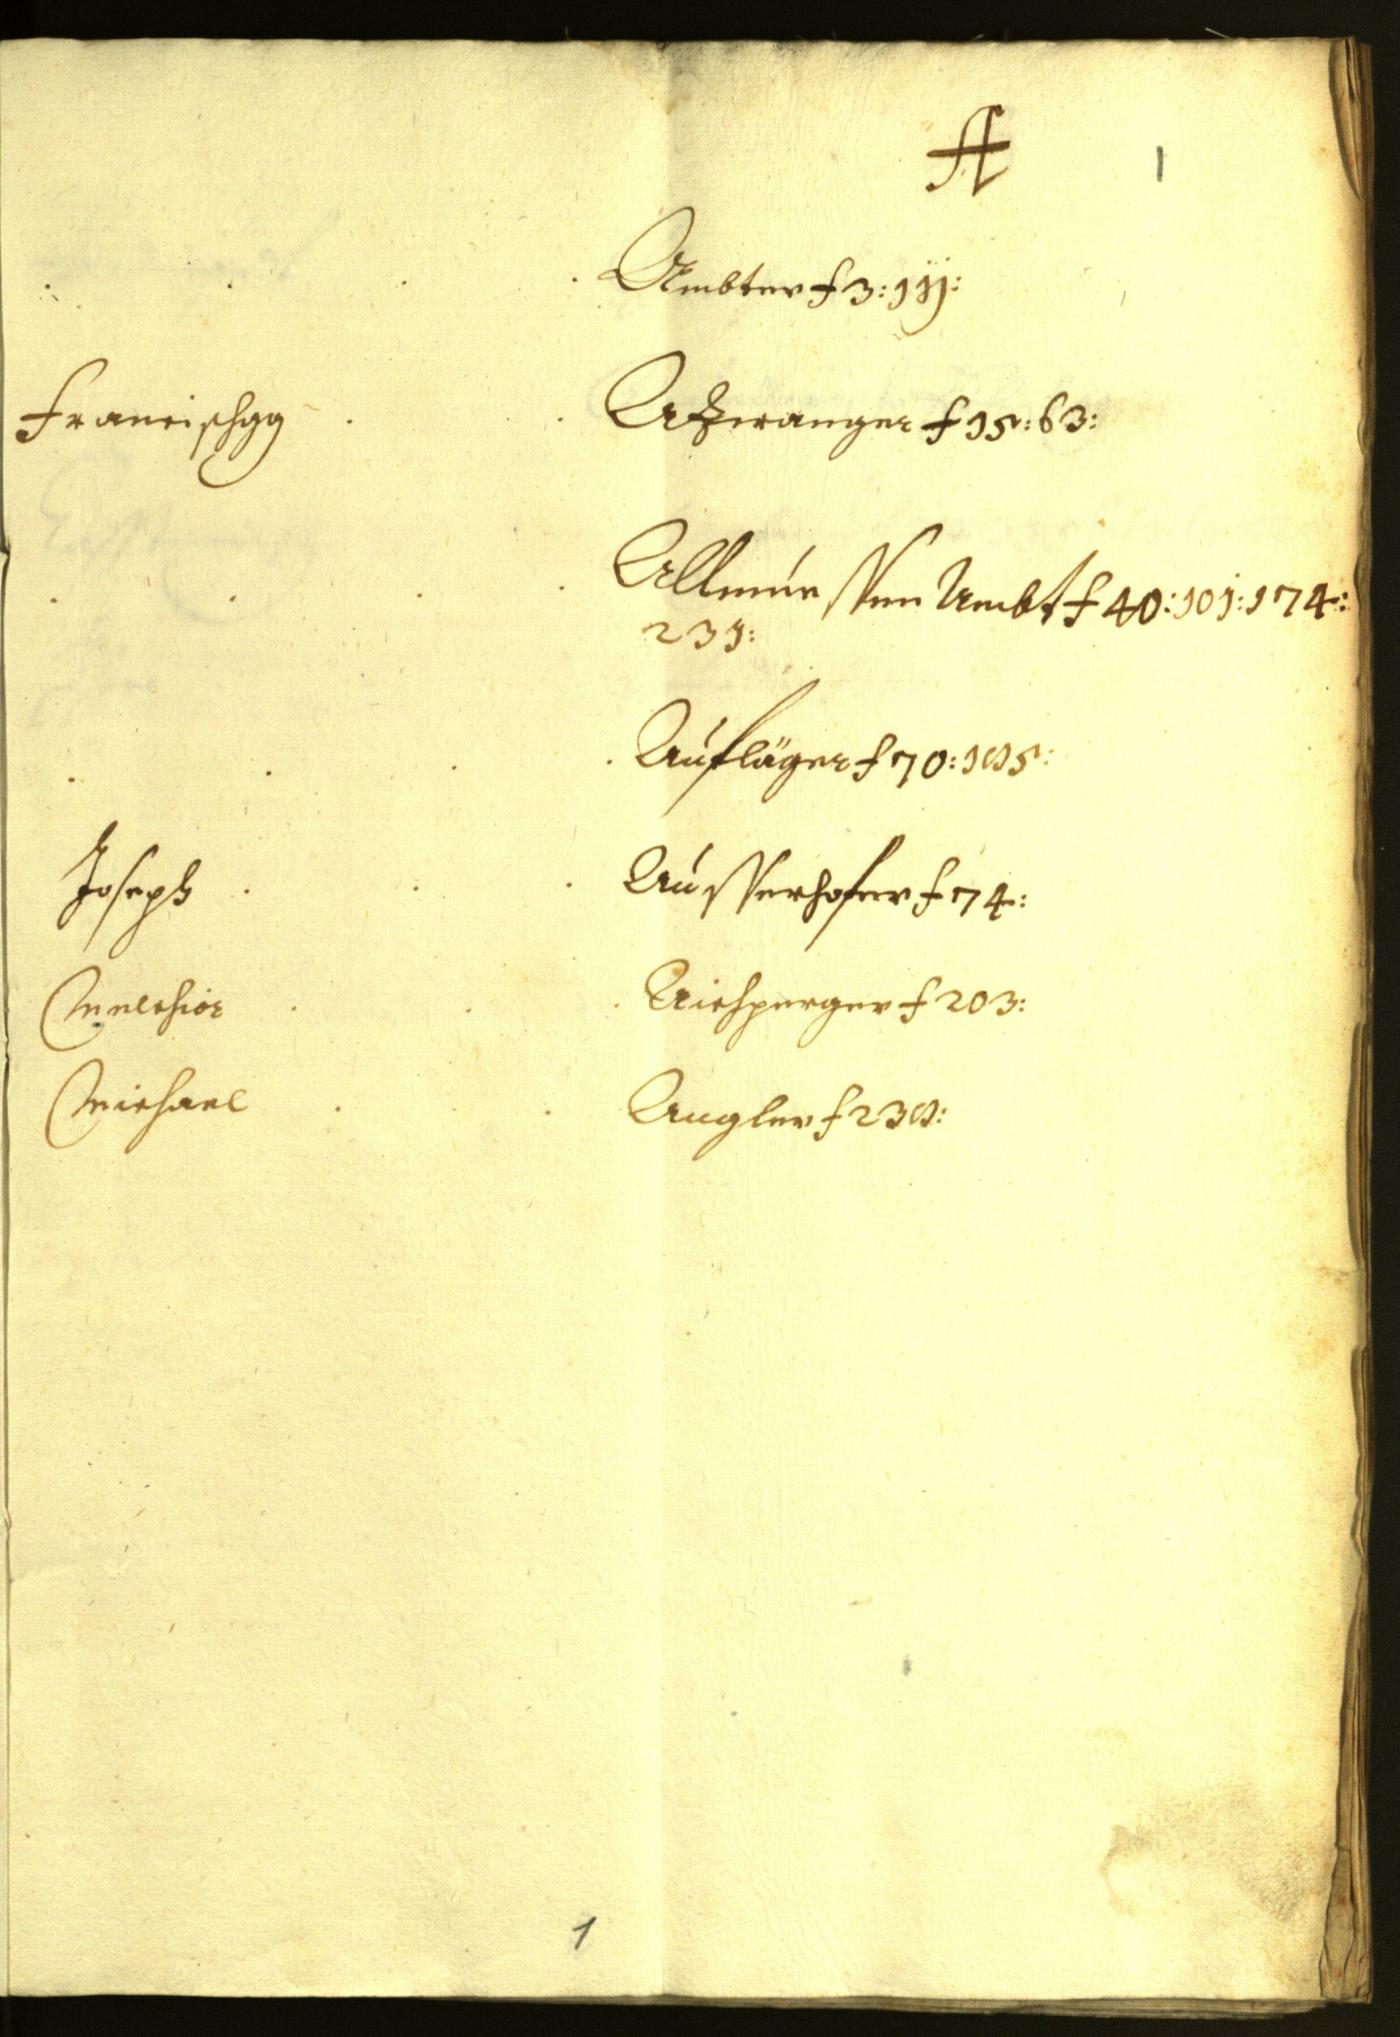 A 1
Ambter f 3: 111:
Francischgg Atzwanger f 15: 63:
Allmuessen Ambt f 40: 101: 174:
231:
Aufläger f 70: 185:
Joseph Ausserhofer f 74:
Melchior Aichperger f 203:
Michael Angler f 238:
1